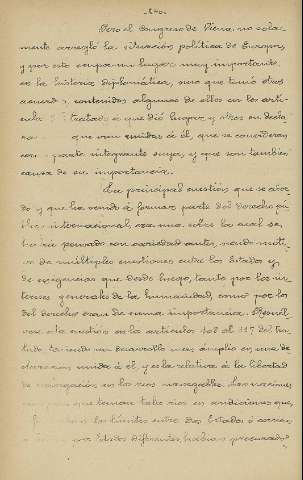 Pero el Congreso de Viena, no sola-
mente arregló la situación política de Europa,
y por esto ocupa un lugar muy importante
en la historia diplomática, sino que tomó otros
acuerdos, contenidos algunos de ellos en los artí-
culos tratado á que dió lugar, y otros en decla
que van unidas á él, que se consideran
como parte integrante suya, y que son también
causa de su importancia.
La principal cuestión que se abor
dó y que ha venido á formar parte del derecho pú-
blico internacional, era una sobre la cual se
había pensado con anterioridad antes, siendo moti-
vo de múltiples cuestiones entre los Estados y
de exigencias que desde luego, tanto por los in-
tereses generales de la humanidad, como por los
del derecho eran de suma importancia. Resuél-
vese esta cuestión en los artículos 108 al 117 del tra-
tado, teniendo un desarrollo más amplio en una de-
claración unida á él, y es la relativa á la libertad
de navegación en los ríos navegables. Las naciones
que tenían tales ríos en condiciones que
los límites entre dos Estados ó corrían
por Estados diferentes, habían procurado